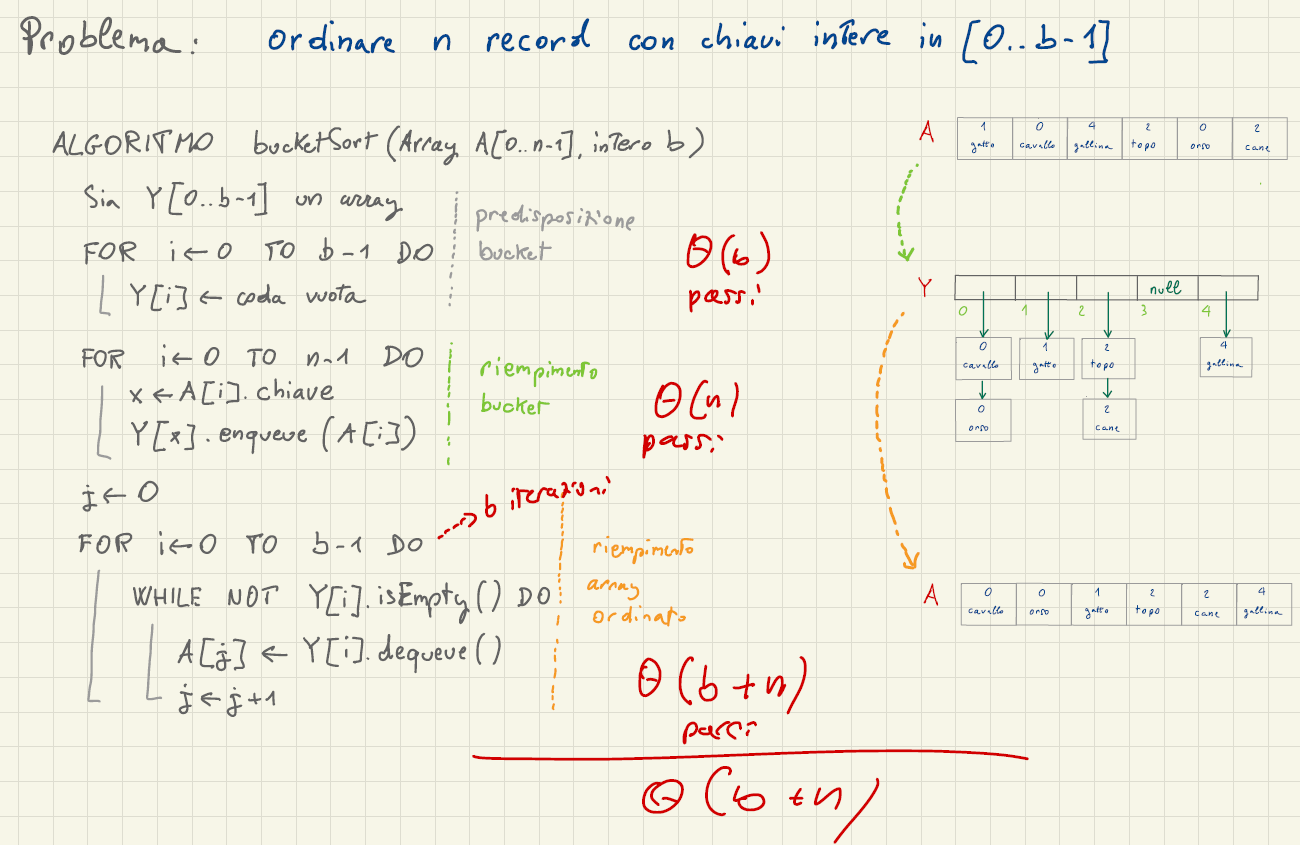 Problema: ordinare n record con chiavi intere in [0..b-1]
ALGORITMO bucketSort (Array A[0..n-1], intero b)
Sia Y[0..b-1] un array
FOR i ← 0 TO b-1 DO
Y[i] ← coda vuota
predisposizione
bucket
Θ(b)
passi
FOR i ← 0 TO n-1 DO
x ← A[i].chiave
Y[x].enqueue (A[i])
riempimento
bucket
Θ(n)
passi
j ← 0
FOR i ← 0 TO b-1 DO
b iterazioni
WHILE NOT Y[i].isEmpty() DO
A[j] ← Y[i].dequeue()
j ← j+1
riempimento
array
ordinato
Θ(b+n)
passi
Θ(b+n)
A
1 0 4 2 0 2
gatto cavallo gallina topo orso cane
Y
null
0 1 2 3 4
0 1 2 4
cavallo gatto topo gallina
0 2
orso cane
A
0 0 1 2 2 4
cavallo orso gatto topo cane gallina